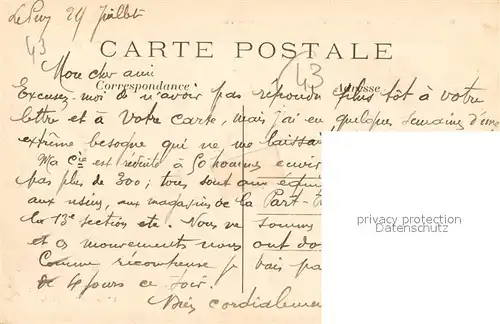 Le Puy 29 Juillet
43
CARTE POSTALE
43
Mon cher ami
Correspondance
Adresse
Excusez-moi de n'avoir pas répondu plus tôt à votre
lettre et à votre carte, mais j'ai eu quelques semaines d'une
extrême besogne qui ne me laissai
Ma Cie est réduite à 50 hommes envir
pas plus de 300; tous sont aux
aux usines, aux magasins de la
la 13e section etc. Nous ne sommes
et ces mouvements nous ont do
Comme récompense je vais pa
4 jours ce soir.
Bien cordialemen
privacy protection
Datenschutz